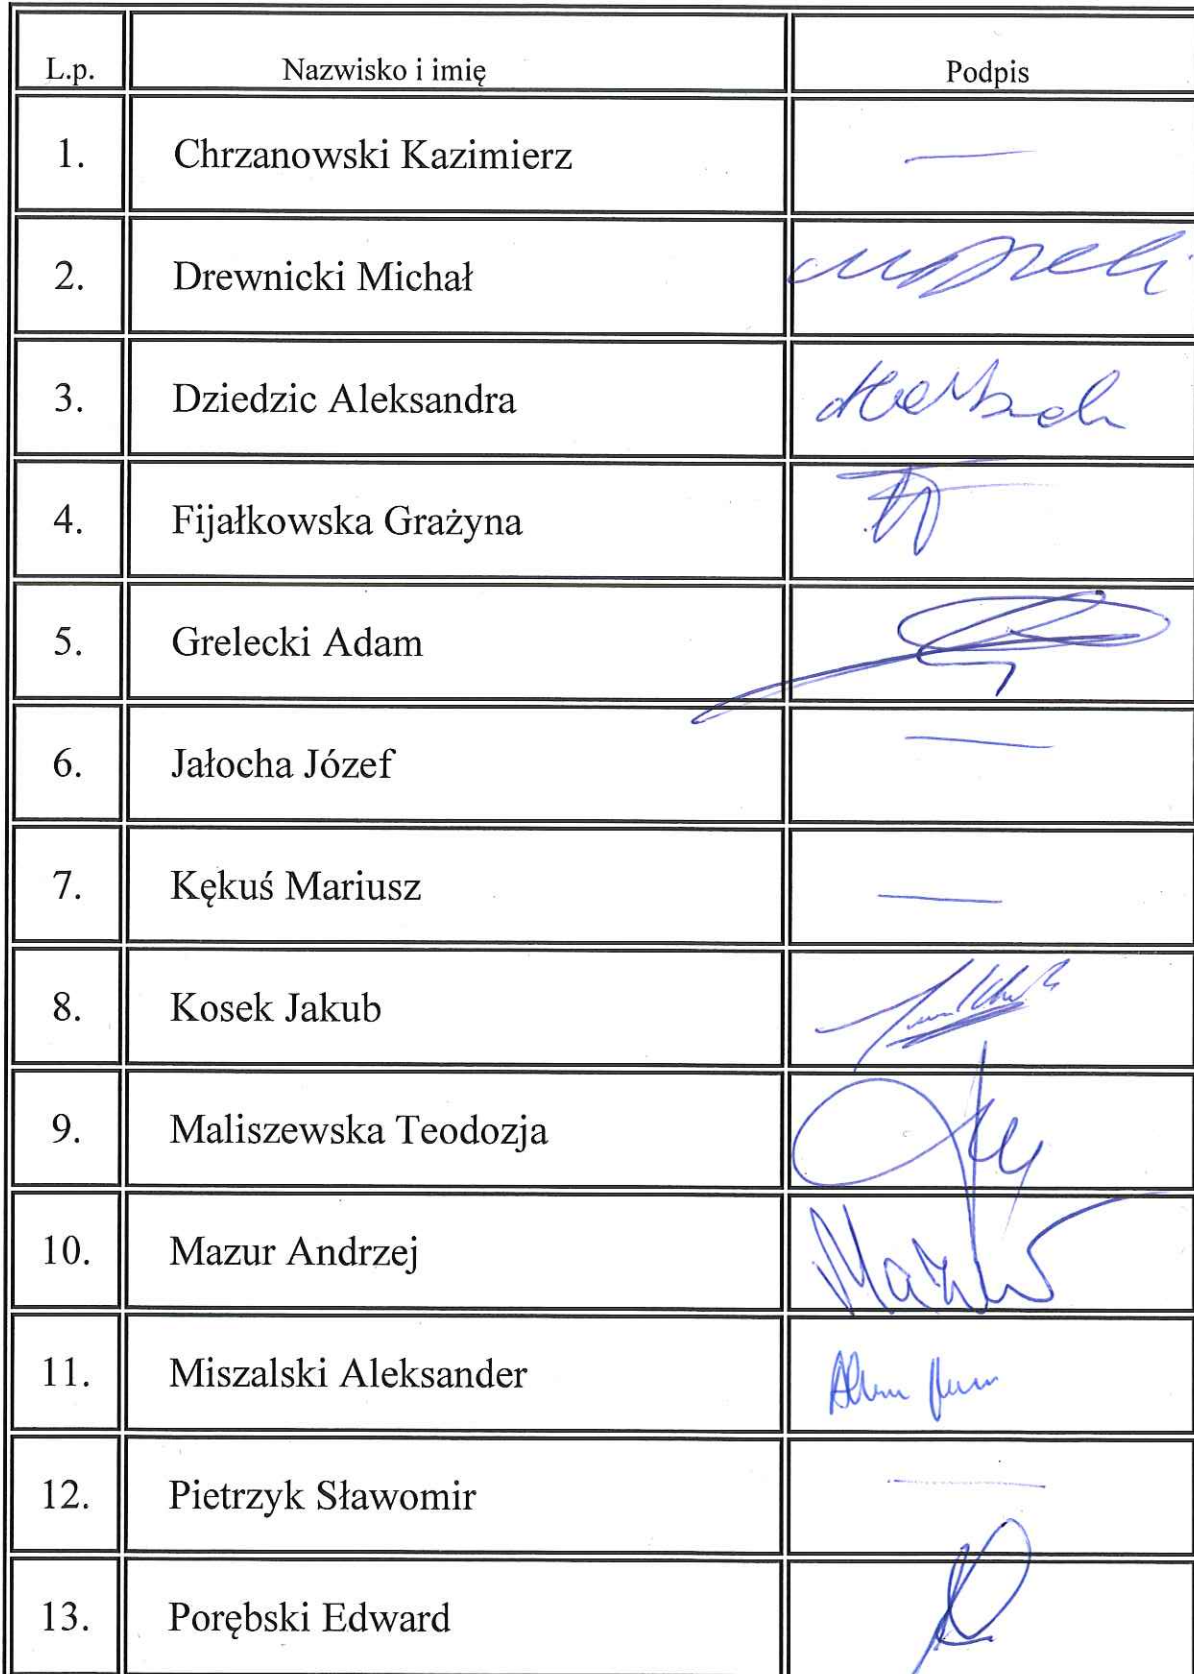 L.p. Nazwisko i imię Podpis
1. Chrzanowski Kazimierz —
2. Drewnicki Michał
3. Dziedzic Aleksandra
4. Fijałkowska Grażyna
5. Grelecki Adam
6. Jałocha Józef —
7. Kękuś Mariusz —
8. Kosek Jakub
9. Maliszewska Teodozja
10. Mazur Andrzej Mazur
11. Miszalski Aleksander
12. Pietrzyk Sławomir —
13. Porębski Edward